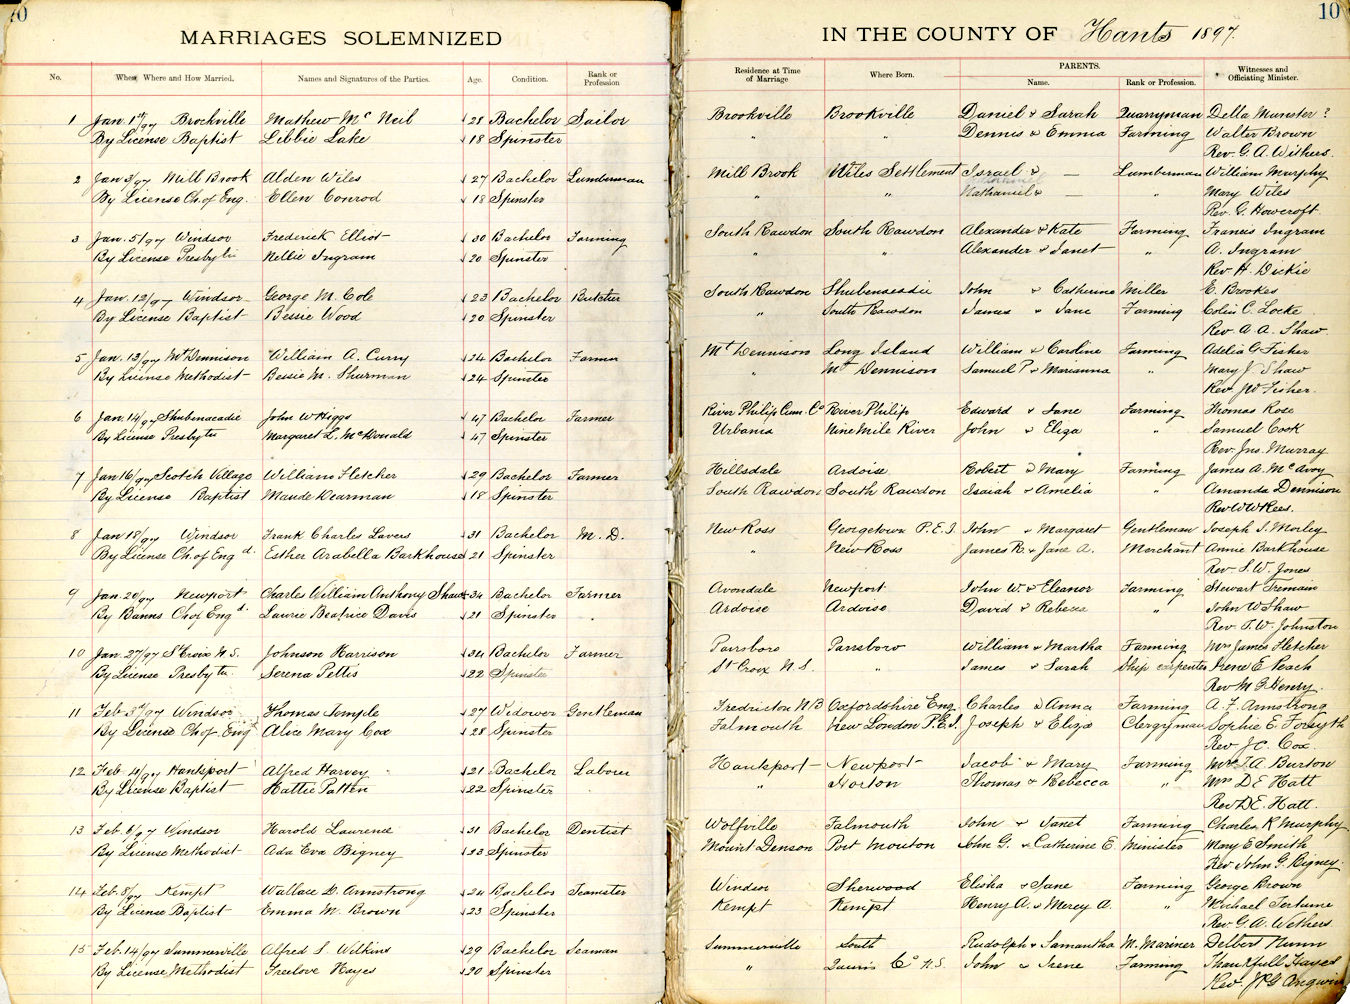 10 10
MARRIAGES SOLEMNIZED IN THE COUNTY OF Hants 1897.
No. When, Where and How Married. Names and Signatures of the Parties. Age. Condition. Rank or Profession Residence at Time of Marriage Where Born. PARENTS. Name. Rank or Profession. Witnesses and Officiating Minister.
1 Jan. 1st/97 Brockville Mathew Mc Neil 28 Bachelor Sailor Brookville Brookville Daniel & Sarah Quarryman Della Munster ?
By License Baptist Libbie Lake 18 Spinster " " Dennis & Emma Farming Walter Brown
Rev. G. A. Withers.
2 Jan 3/97 Mill Brook Alden Wiles 27 Bachelor Lumberman Mill Brook Wiles Settlement Israel & — Lumberman William Murphy
By License Ch. of Eng. Ellen Conrod 18 Spinster " " Nathaniel & — " Mary Wiles
Rev. G. Howcroft.
3 Jan. 5/97 Windsor Frederick Elliot 30 Bachelor Farming South Rawdon South Rawdon Alexander & Kate Farming Francis Ingram
By License Presbytn Nellie Ingram 20 Spinster " " Alexander & Janet " A. Ingram
Rev. H. Dickie
4 Jan. 12/97 Windsor George M. Cole 23 Bachelor Butcher South Rawdon Shubenacadie John & Catherine Miller E. Brookes
By License Baptist Bessie Wood 20 Spinster " South Rawdon James & Jane Farming Colin C. Locke
Rev. A A. Shaw
5 Jan. 13/97 Mt Dennison William A. Curry 24 Bachelor Farmer Mt Dennison Long Island William & Caroline Farming Adelia G. Fisher
By License Methodist Bessie M. Shurman 24 Spinster " Mt Dennison Samuel T. & Marianna " Mary J. Shaw
Rev. J W Fisher.
6 Jan. 14/97 Shubenacadie John W Higgs 47 Bachelor Farmer River Philip Cum. Co River Philip Edward & Jane Farming Thomas Rose
By License Presbytn Margaret L. McDonald 47 Spinster Urbania Nine Mile River John & Eliza " Samuel Cook
Rev. Jno. Murray
7 Jan 16/97 Scotch Village William Fletcher 29 Bachelor Farmer Hillsdale Ardoise Robert & Mary Farming James A. McAvoy
By License Baptist Maude Kearman 18 Spinster South Rawdon South Rawdon Isaiah & Amelia " Amanda Dennison
Rev W W Rees.
8 Jan 18/97 Windsor Frank Charles Lavers 31 Bachelor M. D. New Ross Georgetown P.E.I. John & Margaret Gentleman Joseph S. Morley
By License Ch. of Engd. Esther Arabella Barkhouse 21 Spinster " New Ross James R. & Jane A. Merchant Annie Barkhouse
Rev. S. W. Jones
9 Jan. 20/97 Newport Charles William Anthony Shaw 34 Bachelor Farmer Avondale Newport John W. & Eleanor Farming Stewart Tremain
By Banns Ch of Engd. Laurie Beatrice Davis 21 Spinster Ardoise Ardoise David & Rebecca " John W Shaw
Rev. T. W. Johnston
10 Jan. 27/97 St Croix N.S. Johnson Harrison 34 Bachelor Farmer Parrsboro Parrsboro William & Martha Farming Mrs James Fletcher
By License Presbytn. Serena Pettis 22 Spinster St Croix N.S. " James & Sarah Ship carpenter Irene E. Peach
Rev M G Henry.
11 Feb 3d/97 Windsor Thomas Temple 27 Widower Gentleman Fredricton N B Oxfordshire Eng Charles & Anna Farming A. F. Armstrong
By License Ch of Engd Alice Mary Cox 28 Spinster Falmouth New London P.E.I. Joseph & Eliza Clergyman Sophie E. Forsyth
Rev. J. C. Cox.
12 Feb. 4/97 Hantsport Alfred Harvey 21 Bachelor Labourer Hantsport Newport Jacob & Mary Farming Mrs T. A. Burton
By License Baptist Hattie Patten 22 Spinster " Horton Thomas & Rebecca " Mrs D E Hatt
Rev D. E. Hatt.
13 Feb. 6/97 Windsor Harold Lawrence 31 Bachelor Dentist Wolfville Falmouth John & Janet Farming Charles K Murphy
By License Methodist Ada Eva Bigney 23 Spinster Mount Denson Port Mouton John G. & Catherine E Minister Mary E Smith
Rev John G. Bigney
14 Feb. 8/97 Kempt Wallace D. Armstrong 24 Bachelor Teamster Windsor Sherwood Elisha & Jane Farming George Brown
By License Baptist Emma M. Brown 23 Spinster Kempt Kempt Henry A. & Mercy A. " Michael Terfume
Rev. G. A. Wethers.
15 Feb. 14/97 Summerville Alfred S. Wilkins 29 Bachelor Seaman Summerville South Rudolph & Samantha M. Mariner Delbert Nunn
By License Methodist Freelove Hayes 20 Spinster " Queens Co N.S. John & Irene Farming Thankfull Hayes
Rev. J. G. Angwin